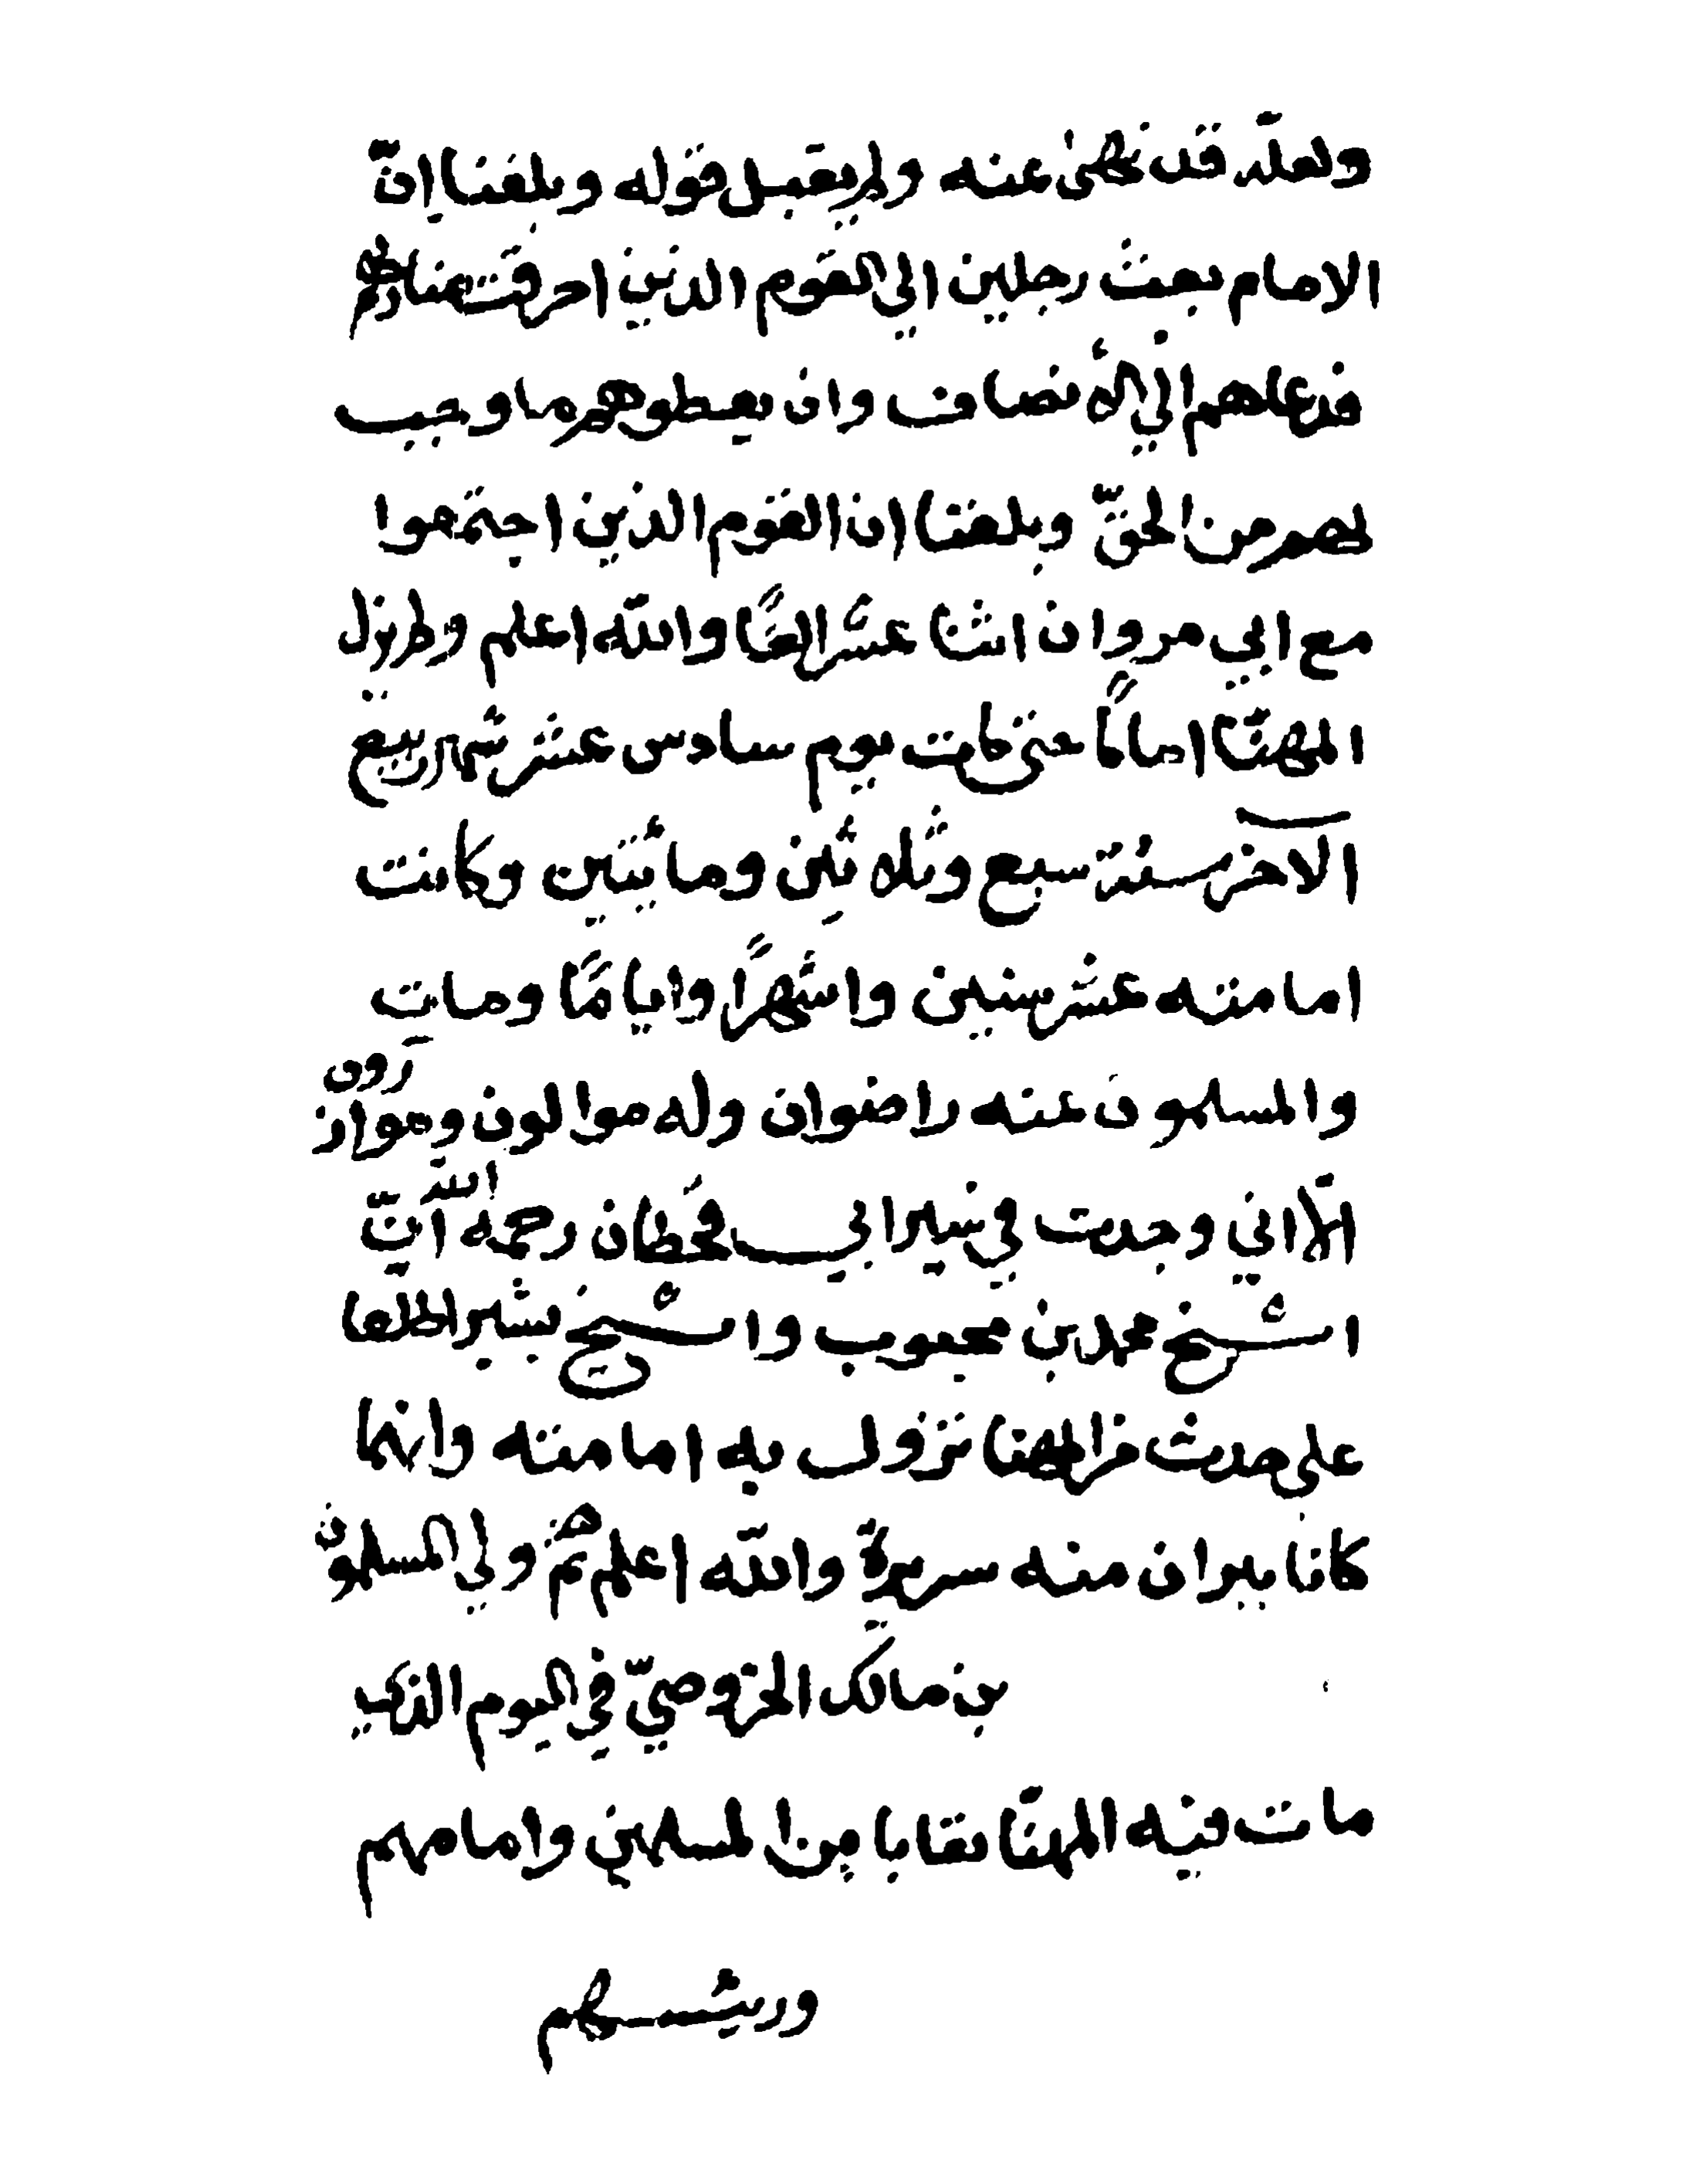 ولعلّه قد نهىٰ عنه ولم يقبل قوله وبلغنا انّ
الامام بعث رجلين الي القوم الذين احرقت منازلهم
فدعاهم الي الأنصاف وان يعطوهم ما وجب
لهم من الحقّ وبلغنا ان القوم الذين اجتمعوا
مع ابي مروان اثنا عشر الفًا والله اعلم ولم يزل
المهنّا امامًا حتى مات يوم سادس عشر شهر ربيع
الآخر سنة سبع وثلاثين ومائتين وكانت
امامته عشر سنين واشهرًا واياما ومات
والمسلمون عنه راضوان وله موالون وموازرون
الّا اني وجدت في سير ابي قحطان رحمه الله انّ
الشيخ محمد بن محبوب والشيخ بشير اطلعا
على حدث من المهنا تزول به امامته وانهما
كانا يبران منه سريرة والله اعلم ثم ولي المسلمون
بن مالك الخروصيّ في اليوم الذي
مات فيه المهنّا بقايا من المسلمين وامامهم
وريسهم